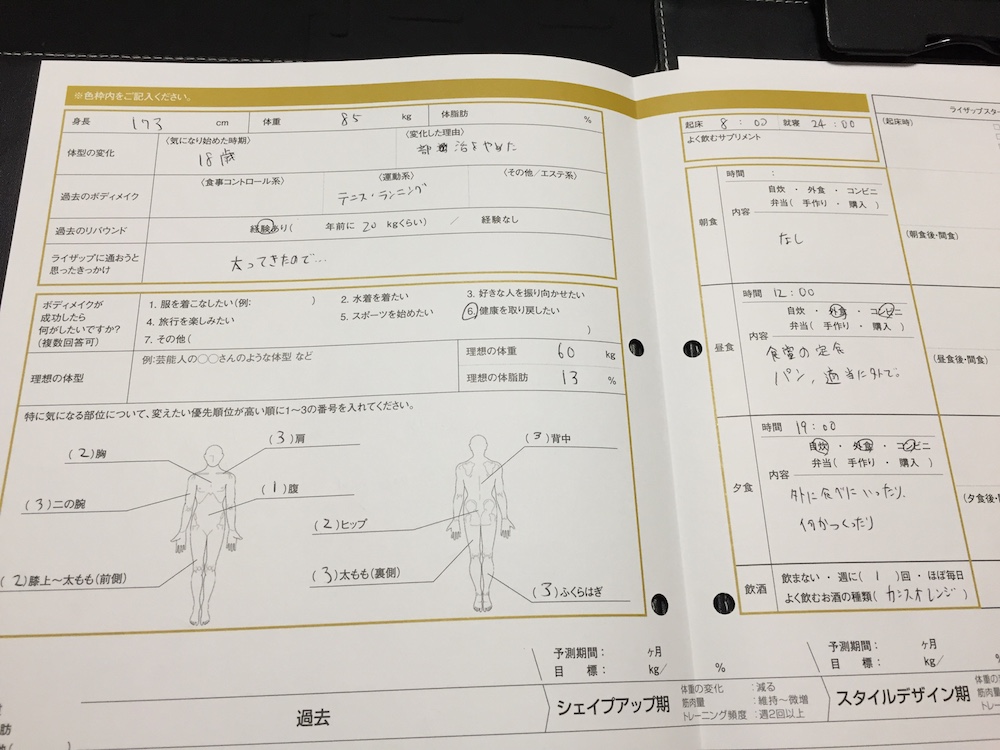 ※色枠内をご記入ください。
身長 173 cm 体重 85 kg 体脂肪 %
体型の変化 〈気になり始めた時期〉 〈変化した理由〉
18歳 部活をやめた
過去のボディメイク 〈食事コントロール系〉 〈運動系〉 〈その他/エステ系〉
テニス・ランニング
過去のリバウンド 経験あり( 年前に 20 kgくらい) / 経験なし
ライザップに通おうと
思ったきっかけ
太ってきたので…
ボディメイクが
成功したら
何がしたいですか?
(複数回答可)
1. 服を着こなしたい(例: ) 2. 水着を着たい 3. 好きな人を振り向かせたい
4. 旅行を楽しみたい 5. スポーツを始めたい 6. 健康を取り戻したい
7. その他( )
理想の体型 例:芸能人の◯◯さんのような体型 など
理想の体重 60 kg
理想の体脂肪 13 %
特に気になる部位について、変えたい優先順位が高い順に1〜3の番号を入れてください。
(2)胸
(3)肩
(3)二の腕
(1)腹
(2)膝上〜太もも(前側)
(3)背中
(2)ヒップ
(3)太もも(裏側)
(3)ふくらはぎ
予測期間: ヶ月
目 標: kg/ %
過去
シェイプアップ期
体重の変化 :減る
筋肉量 :維持〜微増
トレーニング頻度 :週2回以上
起床 8:00 就寝 24:00
よく飲むサプリメント
朝食
時間 :
自炊 ・ 外食 ・ コンビニ
弁当( 手作り ・ 購入 )
内容
なし
昼食
時間 12:00
自炊 ・ 外食 ・ コンビニ
弁当( 手作り ・ 購入 )
内容
食堂の定食
パン、適当に外で。
夕食
時間 19:00
自炊 ・ 外食 ・ コンビニ
弁当( 手作り ・ 購入 )
内容
外に食べにいったり、
何かつくったり
飲酒
飲まない ・ 週に( 1 )回 ・ ほぼ毎日
よく飲むお酒の種類( カシスオレンジ )
予測期間: ヶ月
目 標: kg/
スタイルデザイン期
ライザップスター
(起床時)
(朝食後・間食)
(昼食後・間食)
(夕食後・間